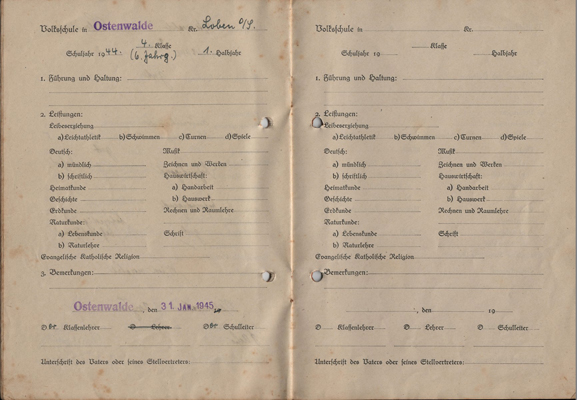 Volksschule in Ostenwalde Kr. Loben O/S.
4. Klasse
Schuljahr 1944. (6. Jahrg.) 1. Halbjahr
1. Führung und Haltung:
2. Leistungen:
Leibeserziehung
a) Leichtathletik b) Schwimmen c) Turnen d) Spiele
Deutsch: Musik
a) mündlich Zeichnen und Werken
b) schriftlich Hauswirtschaft:
Heimatkunde a) Handarbeit
Geschichte b) Hauswerk
Erdkunde Rechnen und Raumlehre
Naturkunde:
a) Lebenskunde Schrift
b) Naturlehre
Evangelische Katholische Religion
3. Bemerkungen:
Ostenwalde, den 31. JAN. 1945
Der Klassenlehrer Der Schulleiter
Unterschrift des Vaters oder seines Stellvertreters:
Volksschule in Kr.
Klasse
Schuljahr 19 Halbjahr
1. Führung und Haltung:
2. Leistungen:
Leibeserziehung
a) Leichtathletik b) Schwimmen c) Turnen d) Spiele
Deutsch: Musik
a) mündlich Zeichnen und Werken
b) schriftlich Hauswirtschaft:
Heimatkunde a) Handarbeit
Geschichte b) Hauswerk
Erdkunde Rechnen und Raumlehre
Naturkunde:
a) Lebenskunde Schrift
b) Naturlehre
Evangelische Katholische Religion
3. Bemerkungen:
, den 19
D Klassenlehrer D Lehrer D Schulleiter
Unterschrift des Vaters oder seines Stellvertreters: